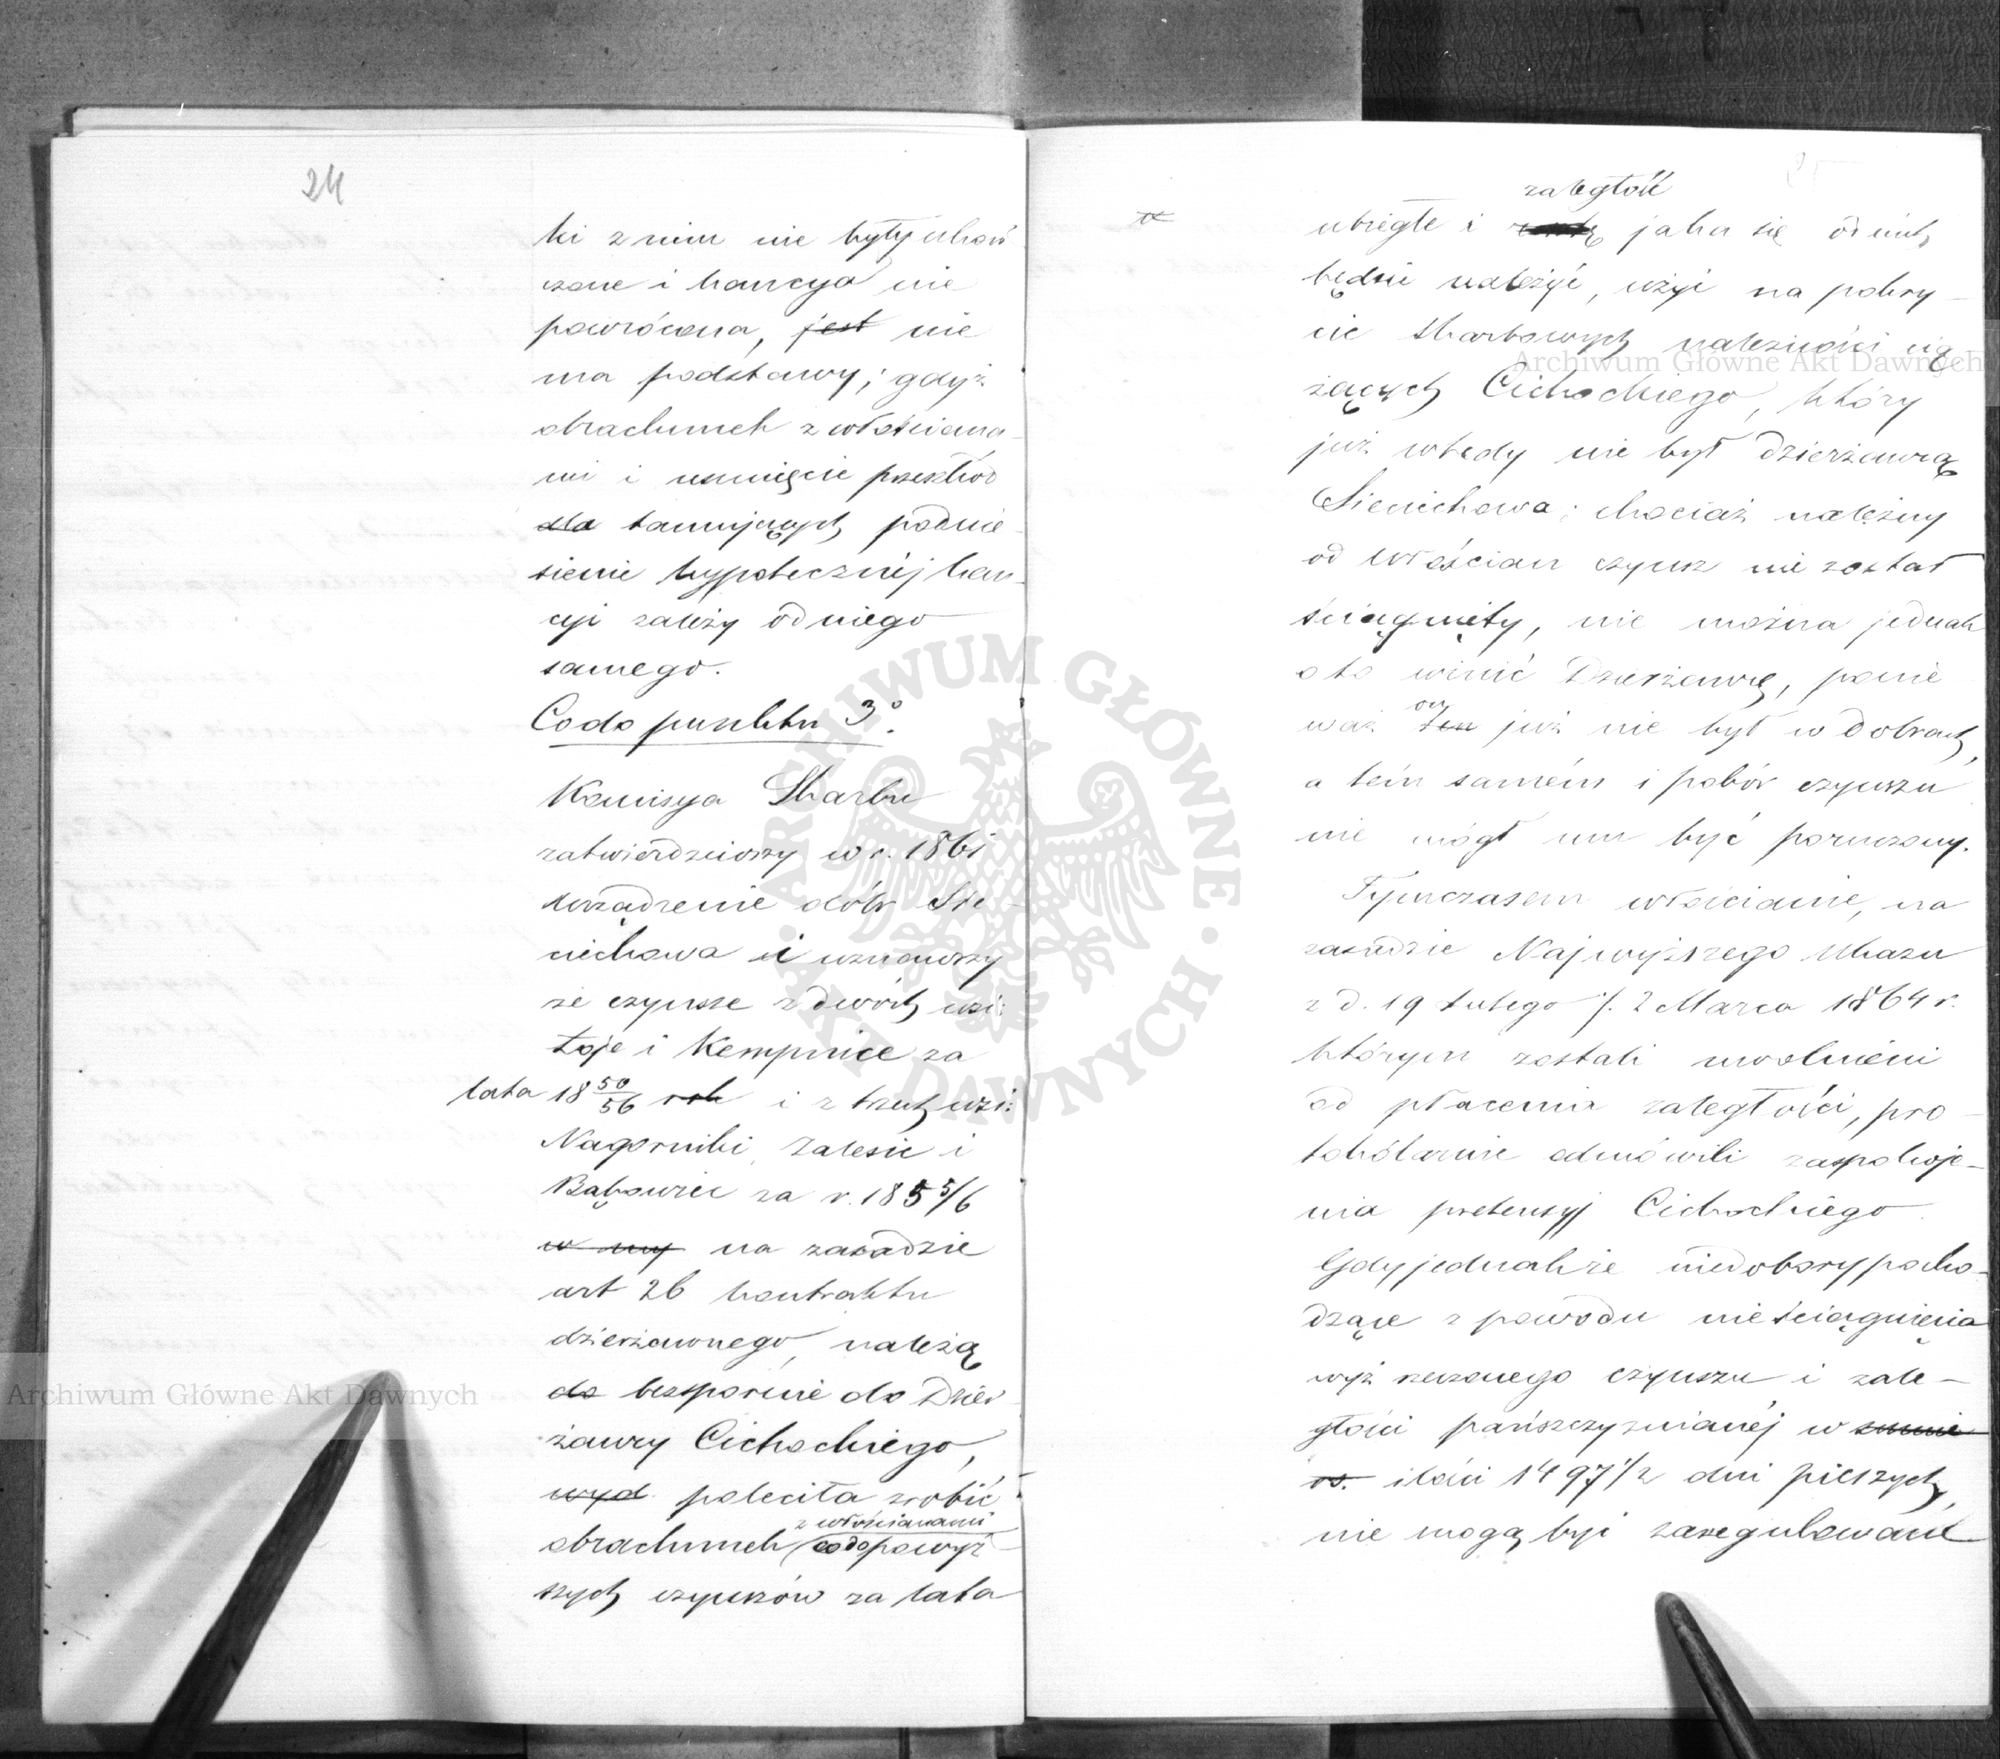 24
ki z nim nie były ukoń
czone i kaucya nie
powrócona, jest nie
ma podstawy; gdyż
obrachunek z włościana
mi i usunięcie przeszkód
dla tamujących podnie
sienie hypotecznéj kau
cyi zależy od niego
samego.
Co do punktu 3º.
Komisya Skarbu
zatwierdziwszy w r. 1861
urządzenie dóbr Sie
ciechowa i uznawszy
że czynsze z dwóch wsi:
Łoje i Kempnice za
lata 18 50/56 rok i z trzech wsi:
Nagorniki, Zalesie i
Bąkowiec za r. 185 5/6
w my na zasadzie
art 26 kontraktu
dzierżawnego, należą
do bezspornie do Dzier
żawcy Cichockiego,
wyd. poleciła zrobić
z włościanami
obrachunek co do powyż
szych czynszów za lata
25
zaległość
ubiegłe i jaka się od nich
będzie należyć, użyć na pokry
cie skarbowych należności cią
żących Cichockiego, który
już wtedy nie był dzierżawcą
Sieciechowa; chociaż należny
od włościan czynsz nie został
ściągnięty, nie można jednak
o to winić Dzierżawcę, ponie
on
waż ten już nie był w dobrach,
a tém samém i pobór czynszu
nie mógł mu być poruczony.
Tymczasem włościanie, na
zasadzie Najwyższego Ukazu
z d. 19 Lutego /. 2 Marca 1864 r.
którym zostali uwolnieni
od płacenia zaległości, pro
tokólarnie odmówili zaspokoje-
nia pretensyj Cichockiego.
Gdy jednakże niedobory pocho-
dzące z powodu nieściągnięcia
wyż rzeczonego czynszu i zale-
głości pańszczyznianéj w summie
rs. ilości 1497 1/2 dni pieszych,
nie mogą być zaregulowane
Archiwum Główne Akt Dawnych
Archiwum Główne Akt Dawnych
ARCHIWUM GŁÓWNE AKT DAWNYCH